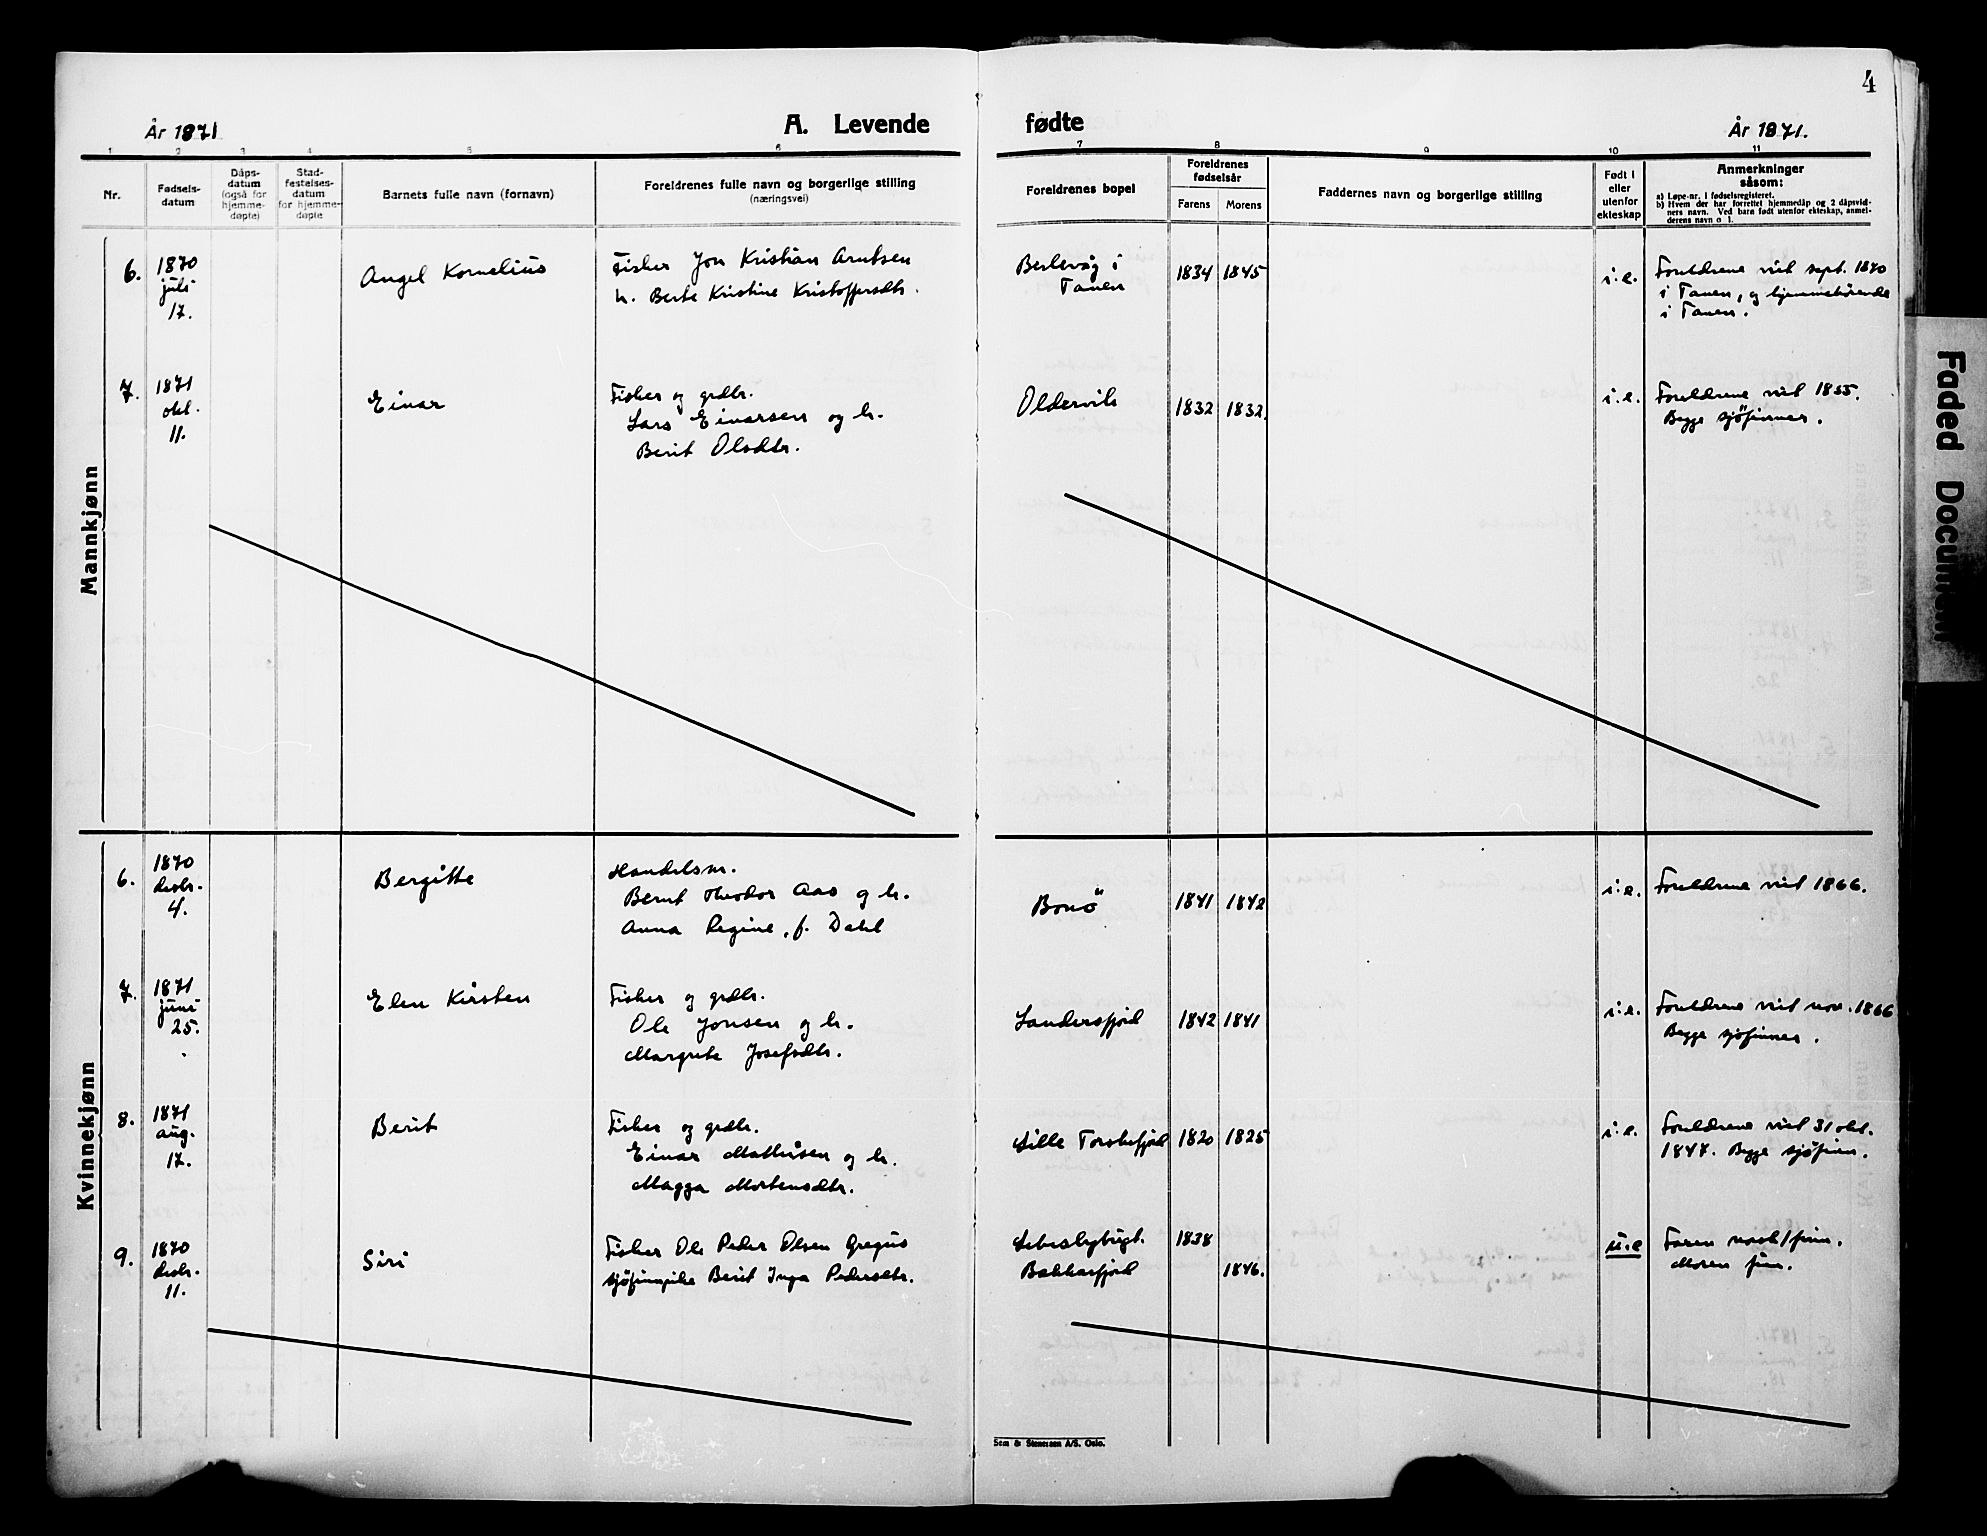 4
År 1871
A. Levende fødte
År 1871.
1 2 3 4 5 6 7 8 9 10 11
Nr.
Fødsels-
datum
Dåps-
datum
(også for
hjemme-
døpte)
Stad-
festelses-
datum
for hjemme-
døpte
Barnets fulle navn (fornavn)
Foreldrenes fulle navn og borgerlige stilling
(næringsvei)
Foreldrenes bopel
Foreldrenes
fødselsår
Farens
Morens
Faddernes navn og borgerlige stilling
Født i
eller
utenfor
ekteskap
Anmerkninger
såsom:
a) Løpe-nr. i fødselsregisteret.
b) Hvem der har forrettet hjemmedåp og 2 dåpsvid-
ners navn. Ved barn født utenfor ekteskap, anmel-
derens navn o. l.
Mannkjønn
6.
1870
juli
17.
Angel Kornelius
Fisker Jon Kristian Arntsen
h. Berte Kristine Kristoffersdtr.
Berlevåg i
Tanen
1834 1845
i.e.
Foreldrene viet sept. 1870
i Tanen, og hjemmehørende
i Tanen.
7.
1871
okt.
11.
Einar
Fisker og grdbr.
Lars Einarsen og h.
Berit Olsdtr.
Oldervik
1832 1832.
i.e.
Foreldrene viet 1855.
Begge sjøfinner.
Kvinnekjønn
6.
1870
desbr.
4.
Bergitte
Handelsm.
Bernt Theodor Aas og h.
Anna Regine, f. Dahl
Bonö
1841 1842
i.e.
Foreldrene viet 1866.
7.
1871
juni
25.
Elen Kirsten
Fisker og grdbr.
Ole Jonsen og h.
Margrete Josefsdtr.
Landersfjord
1842 1841
i.e.
Foreldrene viet nov. 1866
Begge sjøfinner.
8.
1871
aug.
17.
Berit
Fisker og grdbr.
Einar Mathisen og h.
Magga Mortensdtr.
Lille Torskefjord
1820 1825
i.e.
Foreldrene viet 31 okt.
1847. Begge sjøfinn.
9.
1870
desbr.
11.
Siri
Fisker Ole Peder Olsen Gregus
sjøfinnpike Berit Inga Pedersdtr.
Lebesbybugt.
Bakkarfjord
1838
1846.
u.e
Faren norsk/finn.
Moren finn.
Sem & Stenersen A/S. Oslo.
Faded Document